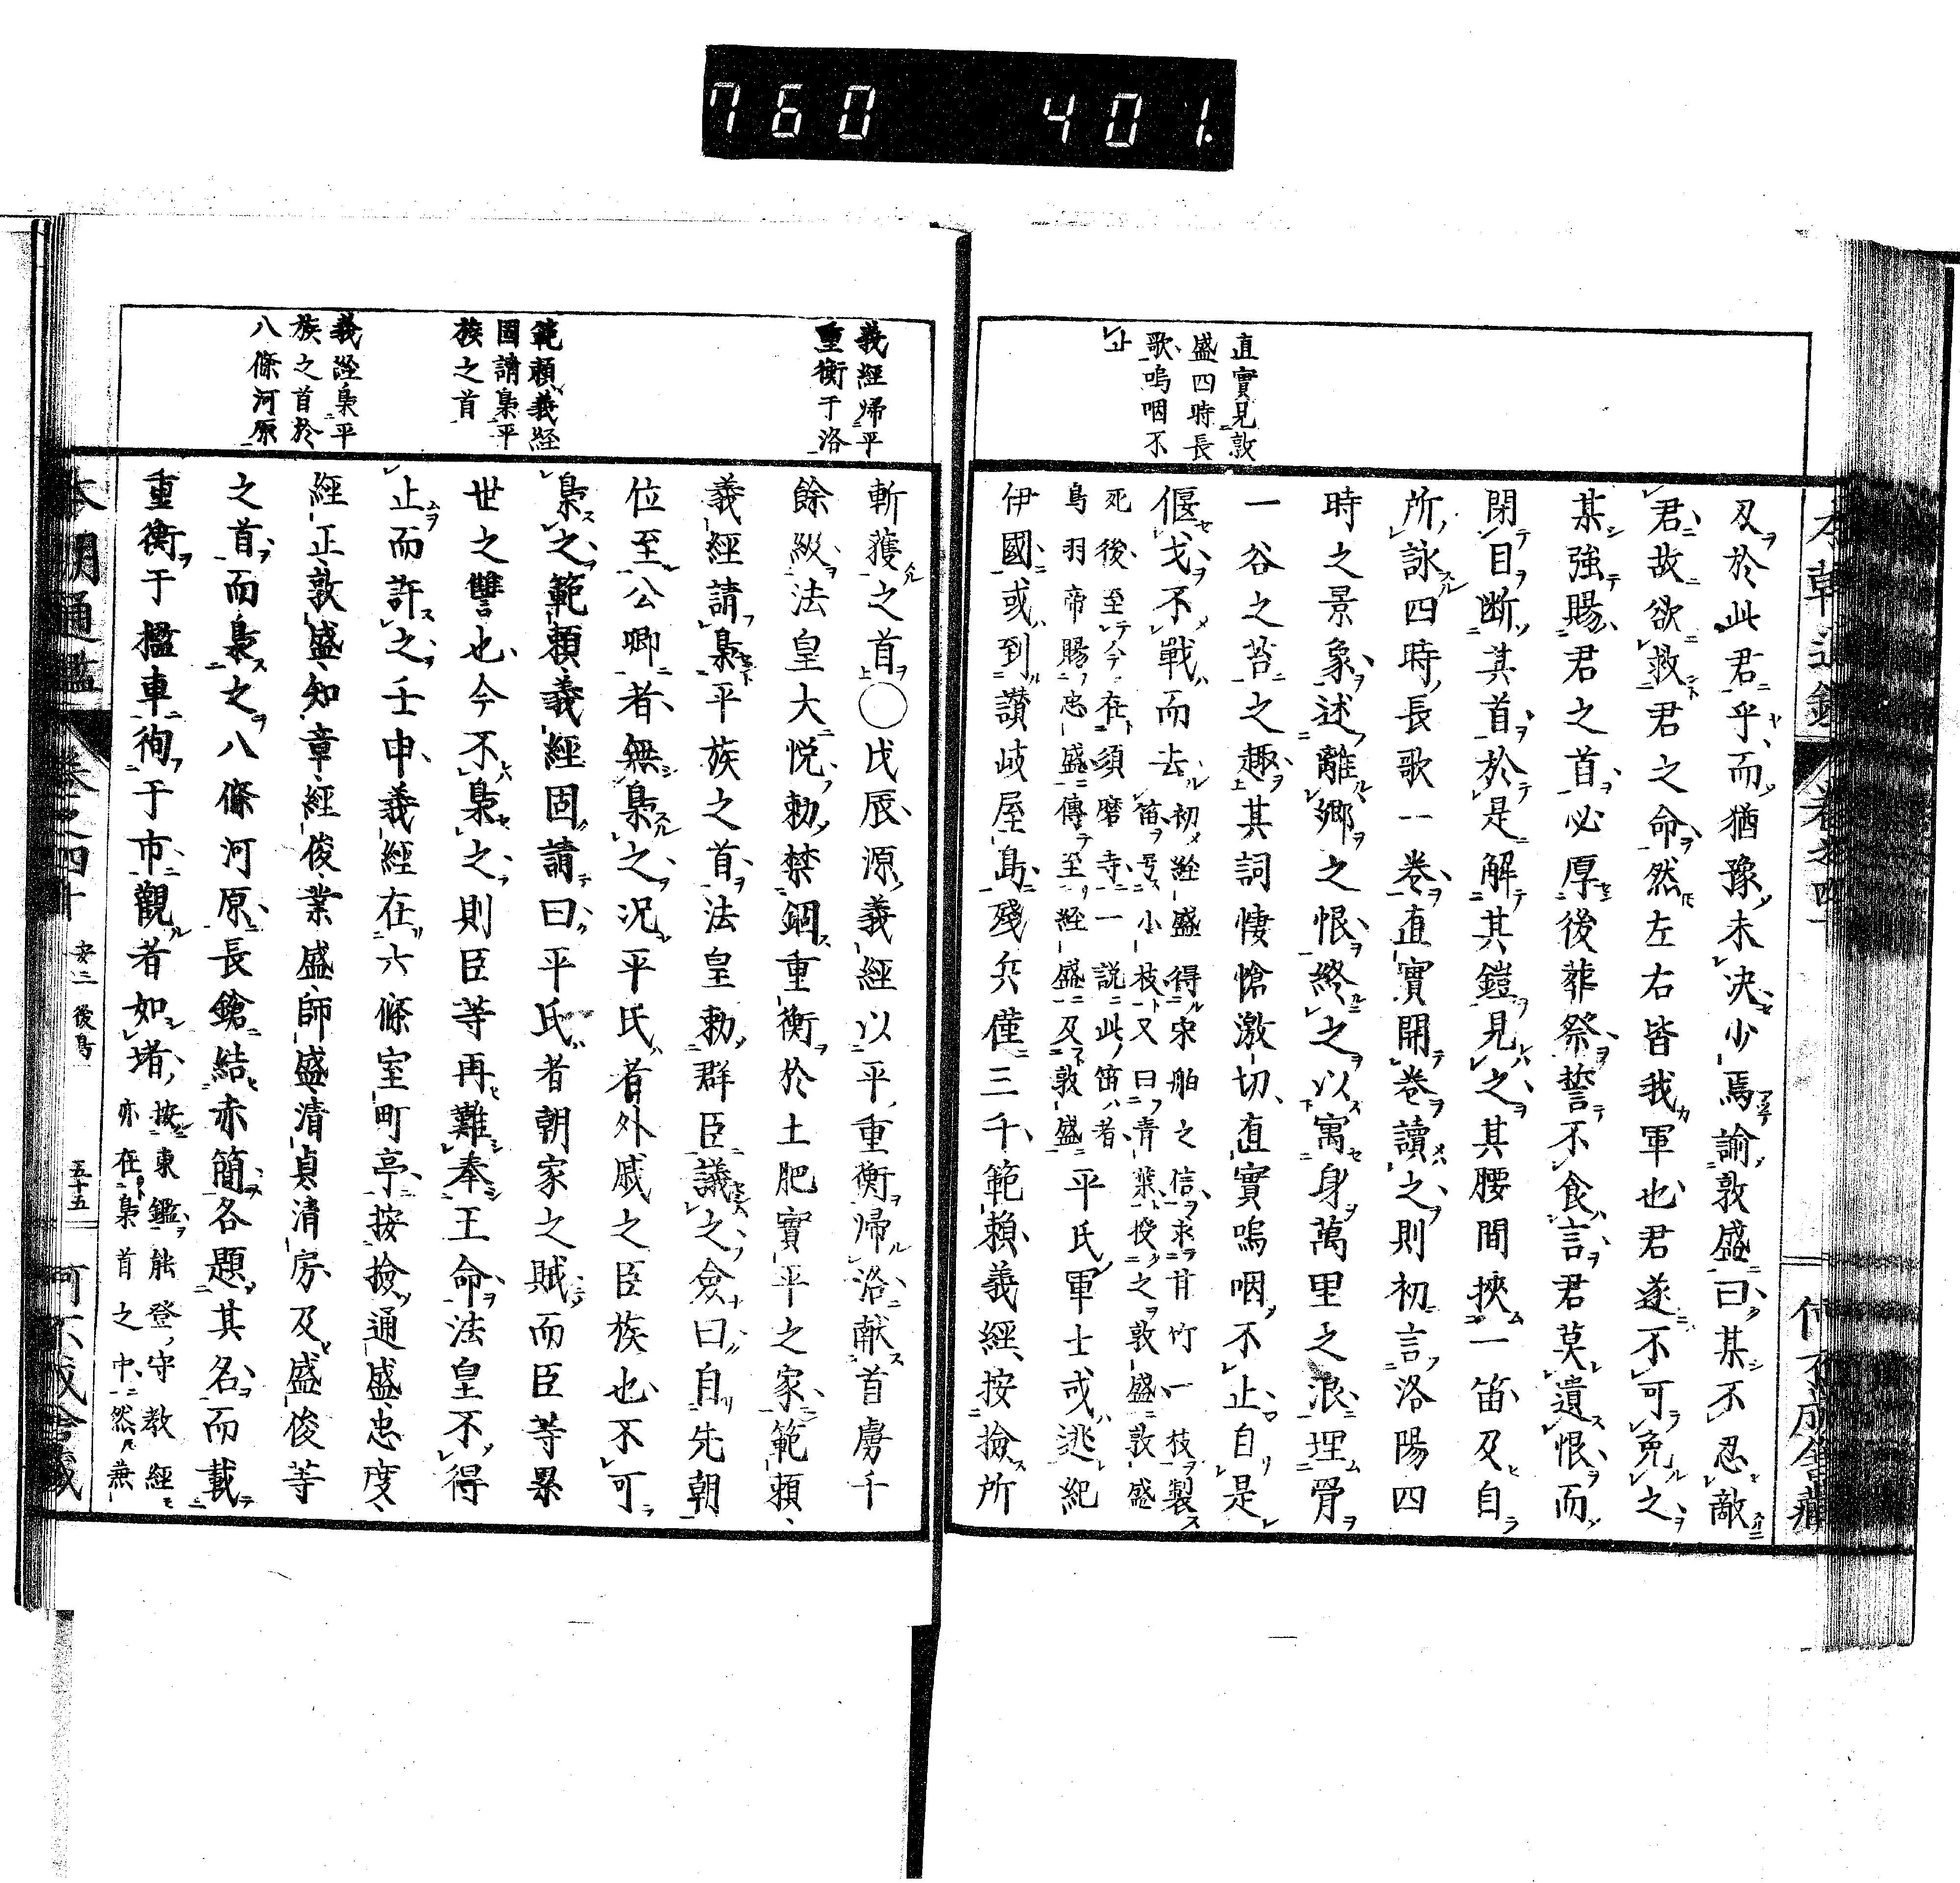 760 401.
直實見敦
盛四時長
歌嗚咽不
止
刄於此君乎而猶豫未决少焉諭敦盛曰某不忍敵
君故欲救君之命然左右皆我軍也君遂不可免之
某強賜君之首必厚後葬祭誓不食言君莫遺恨而
閉目断其首於是解其鎧見之其腰間挾一笛及自
所詠四時長歌一卷直實開卷讀之則初言洛陽四
時之景象述離郷之恨終之以寓身萬里之浪埋骨
一谷之苔之趣其詞悽愴激切直實嗚咽不止自是
偃戈不戰而去
初經盛得宋舶之信求甘竹一枝製
笛号小枝又曰青葉授之敦盛敦盛
死後至今在須磨寺一説此笛者
鳥羽帝賜忠盛傳至經盛及敦盛
平氏軍士或逃紀
伊國或到讃岐屋島殘兵僅三千範賴義經按撿所
義經歸平
重衡于洛
範賴義経
固請梟平
族之首
義経梟平
族之首於
八條河原
斬獲之首〇戊辰源義經以平重衡歸洛献首虜千
餘級法皇大悦勅禁錮重衡於土肥實平之家範賴
義經請梟平族之首法皇勅群臣議之僉曰自先朝
位至公卿者無梟之况平氏者外戚之臣族也不可
梟之範賴義經固請曰平氏者朝家之賊而臣等累
世之讐也今不梟之則臣等再難奉王命法皇不得
止而許之壬申義經在六條室町亭按撿通盛忠度
經正敦盛知章經俊業盛師盛清貞清房及盛俊等
之首而梟之八條河原長鎗結赤簡各題其名而載
重衡于檻車徇于市觀者如堵
按東鑑能登守教經
亦在梟首之中然䒾
本朝通鑑 卷之四十 安二 後鳥 五十五